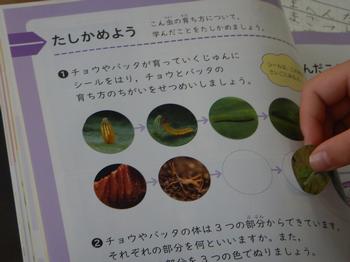 たしかめよう
こん虫の育ち方について、
学んだことをたしかめましょう。
❶ チョウやバッタが育っていくじゅんに
シールをはり、チョウとバッタの
育ち方のちがいをせつめいしましょう。
シールは、
❷ チョウやバッタの体は3つの部分からできています。
それぞれの部分を何といいますか。また、
部分を3つの色でぬりましょう。